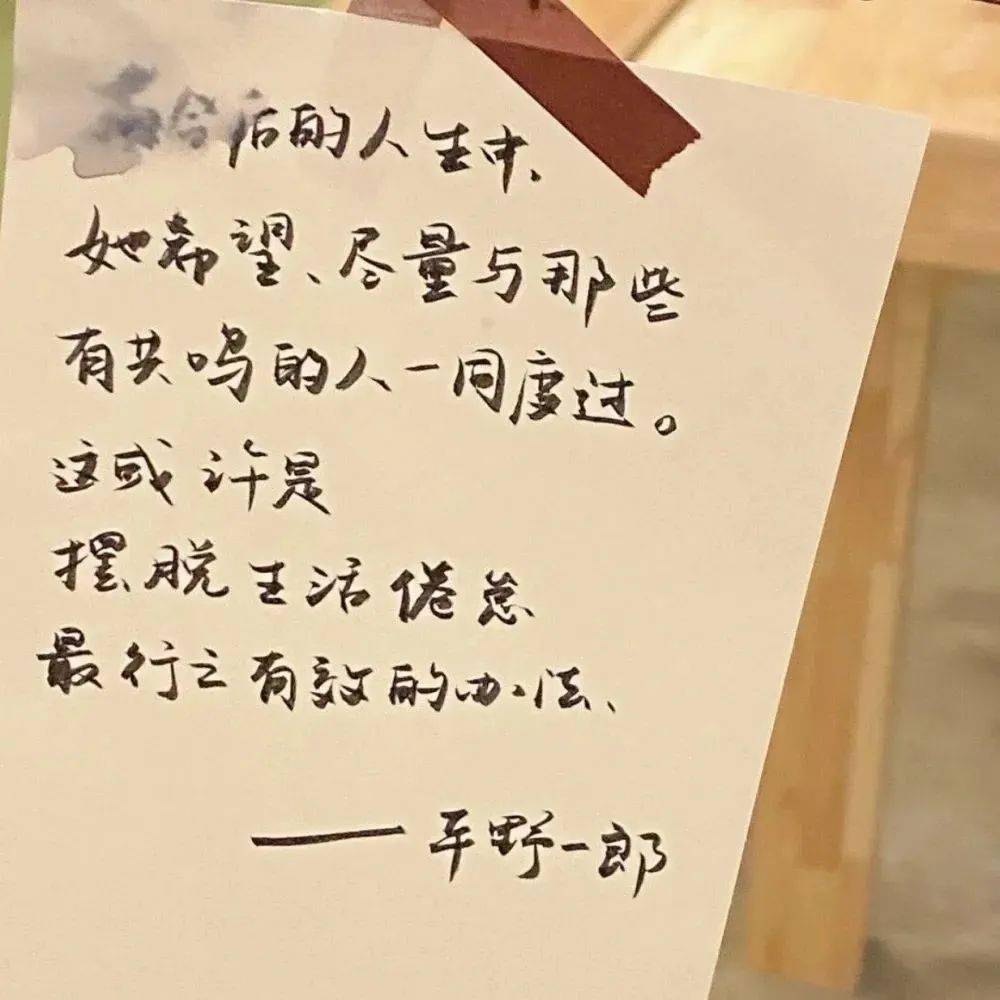 在今后的人生中、
她希望、尽量与那些
有共鸣的人一同度过。
这或许是
摆脱生活倦怠
最行之有效的办法、
——平野一郎